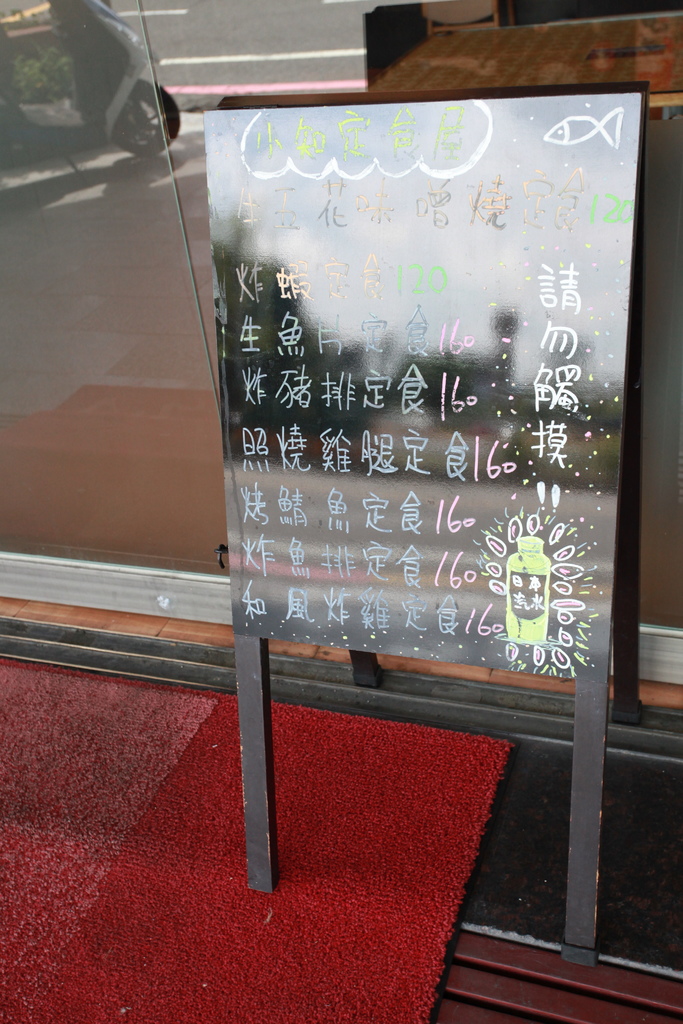 小知定食屋
生五花味噌燒定食120
炸蝦定食120
生魚片定食160
炸豬排定食160
照燒雞腿定食160
烤鯖魚定食160
炸魚排定食160
和風炸雞定食160
請勿觸摸!!
日本
汽水